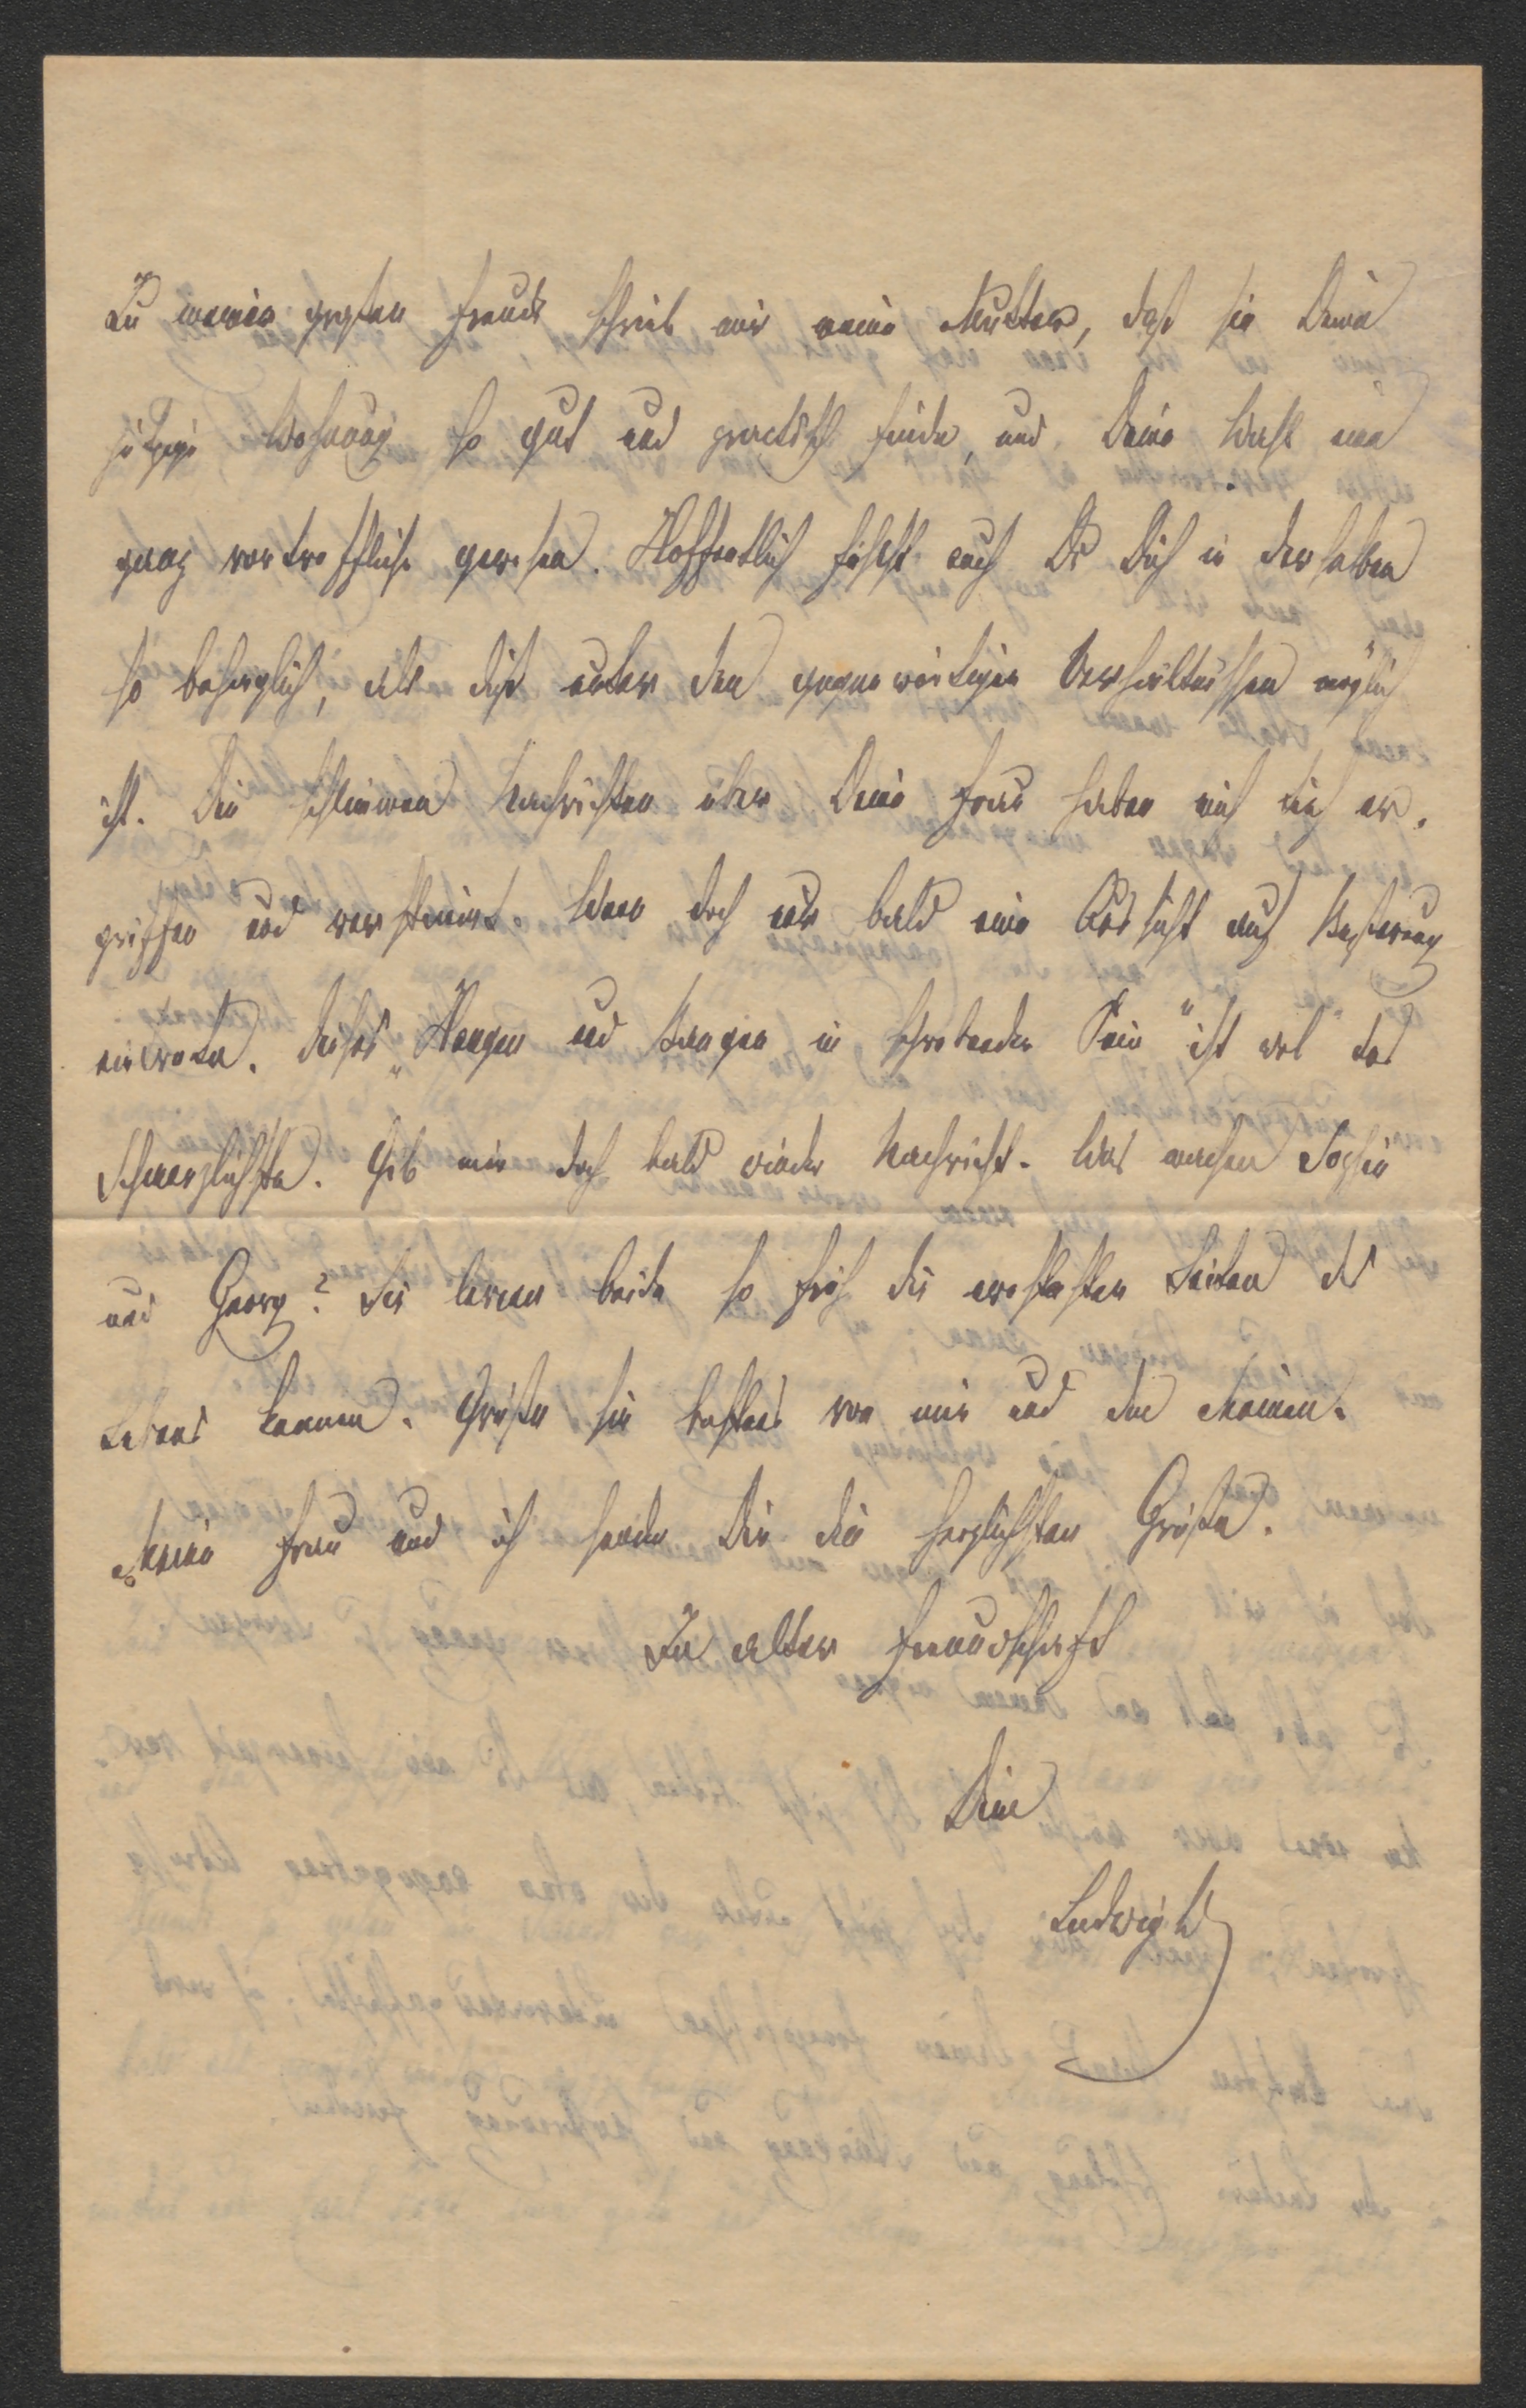 Zu meiner großen Freude schrieb mir meine Mutter, daß sie Deine
jetzige Wohnung so gut und practisch finde, und Deine Wahl eine
ganz vortreffliche gewesen. Hoffentlich fühlst auch Du Dich in derselben
so behaglich, als dieß unter den gegenwärtigen Verhältnissen möglich
ist. Die schlimmen Nachrichten über Deine Frau haben mich tief er-
griffen und verstimmt. Wenn doch nur bald eine Aussicht auf Besserung
einträte. Dieses „Hangen und Bangen in schwebender Pein“ ist wol das
Schmerzlichste. Gib mir doch bald wieder Nachricht. Was machen Sophie
und Georg? Sie lernen beide so früh die ernstesten Seiten des
Lebens kennen. Grüße sie bestens von mir und den Meinen.
Meine Frau und ich senden Dir die herzlichsten Grüße.
In alter Freundschaft
Dein
Ludwig W